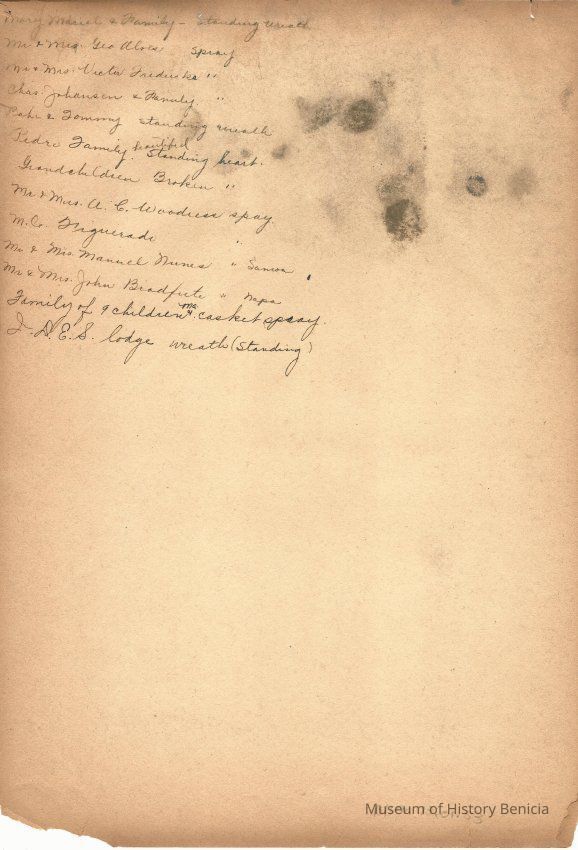 Mary Maciel & Family - Standing wreath
Mr & Mrs. Geo Alves spray
Mr & Mrs. Victor Fredericks "
Chas. Johansen & Family "
& Tommy standing wreath
Pedro Family. beautiful Standing heart.
Grandchildren Broken "
Mr & Mrs. A. C. Woodress spay.
M. Co. Figuerado "
Mr & Mrs Manuel Nunes "
Mr & Mrs. John Bradfute " Napa
Family of 9 children casket spray.
I. D. E. S. lodge wreath (standing)
Museum of History Benicia